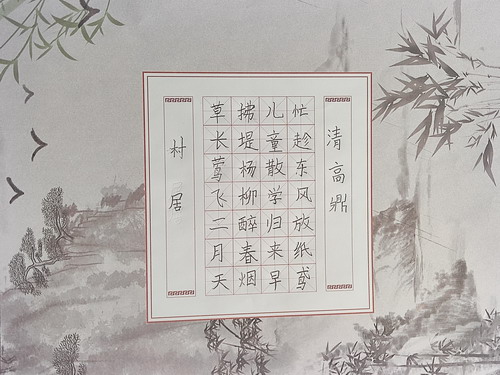 村居
草长莺飞二月天
拂堤杨柳醉春烟
儿童散学归来早
忙趁东风放纸鸢
清高鼎